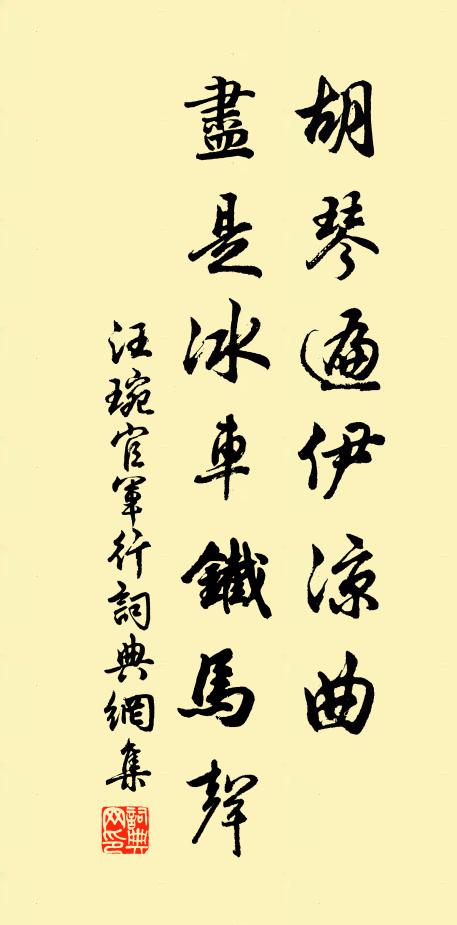 胡琴遍伊涼曲
盡是冰車鐵馬聲
汪琬官軍行詞典網集
詞典網印